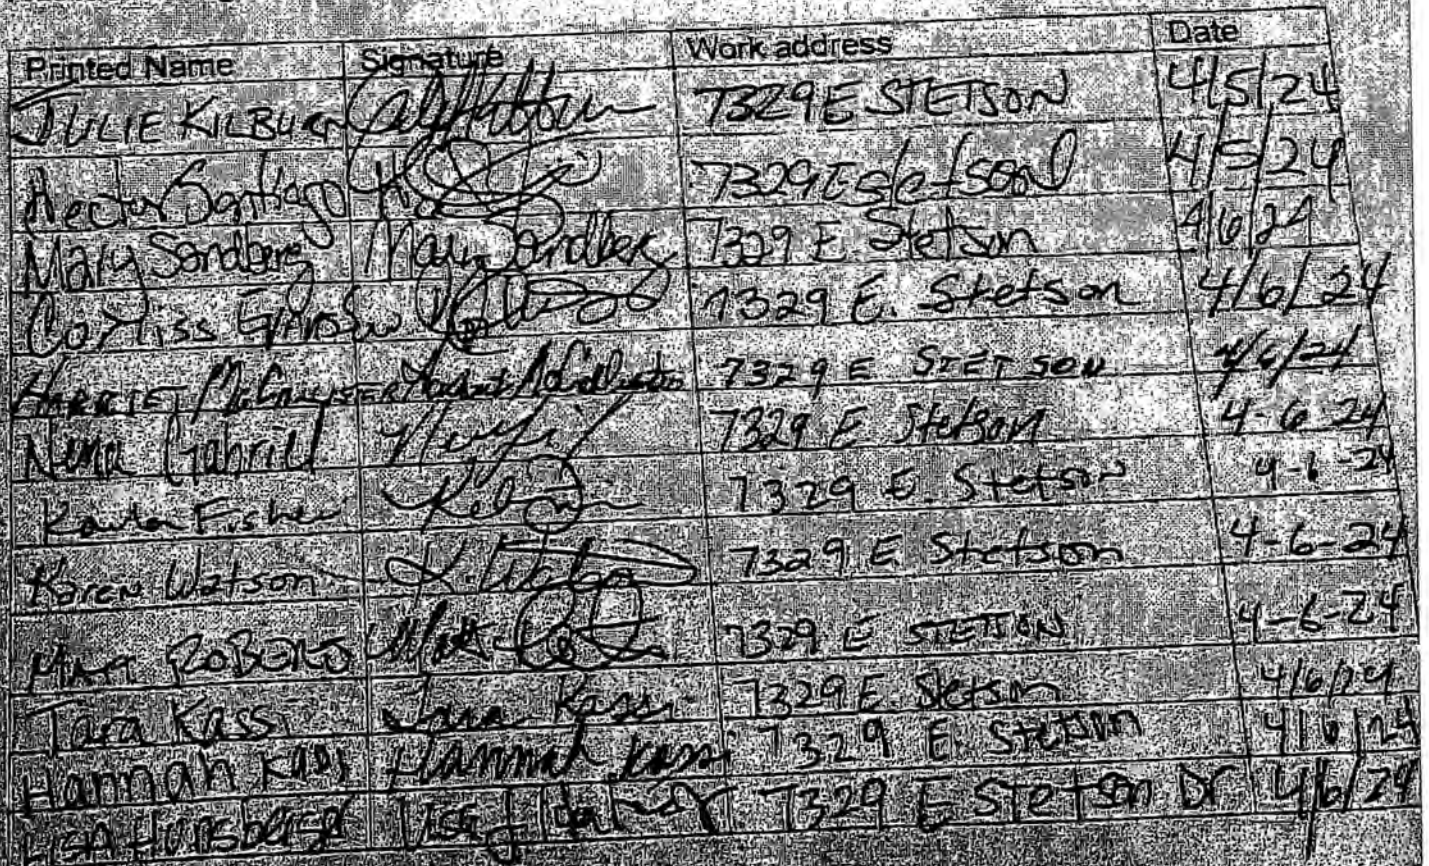 Printed Name Signature Work address Date
JULIE KILBURN 7329 E STETSON 4/5/24
Hector Santiago 7329 E stetson 4/5/24
Mary Sandberg Mary Sandberg 7329 E Stetson 4/6/24
Corliss 7329 E. Stetson 4/6/24
HARRIET 7329 E STETSON 4/6/24
Nina Gabriel 7329 E Stetson 4-6-24
Karla Fisher 7329 E. Stetson 4-6-24
Karen Watson K. Watson 7329 E Stetson 4-6-24
MATT ROBERTS Matt 7329 E STETSON 4-6-24
Tara Kassi Tara Kassi 7329 E. Stetson 4/6/24
Hannah Kassi Hannah Kassi 7329 E. Stetson 4/6/24
LISA 7329 E Stetson Dr 4/6/24